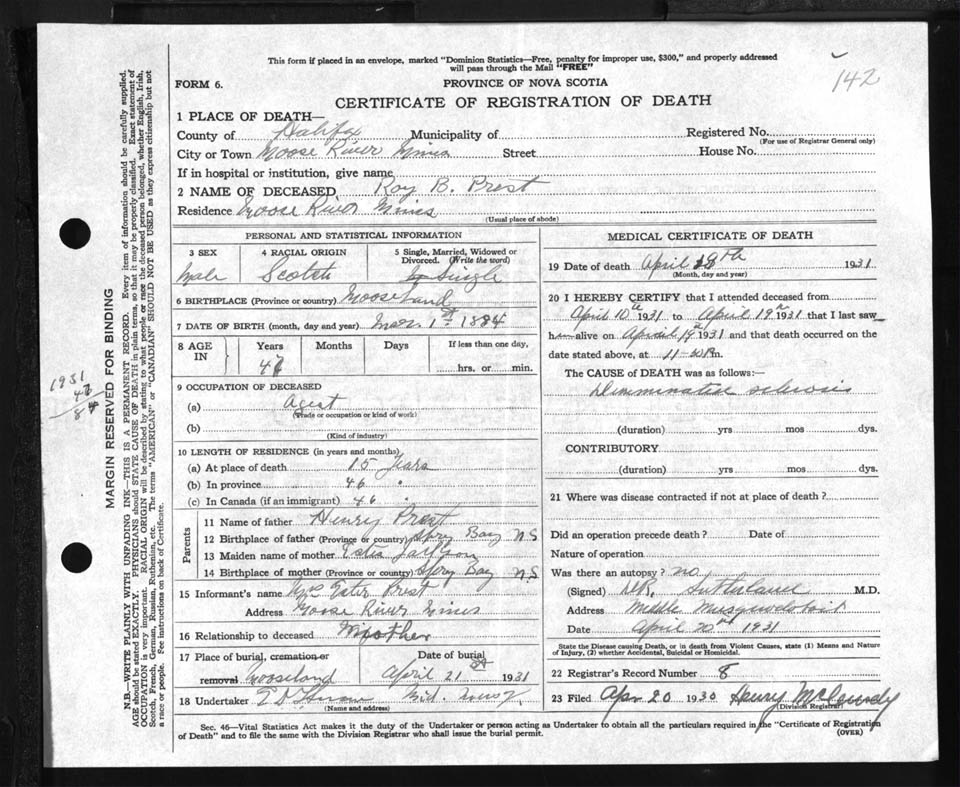 This form if placed in an envelope, marked "Dominion Statistics—Free, penalty for improper use, $300," and properly addressed
will pass through the Mail "FREE"
142
FORM 6.
PROVINCE OF NOVA SCOTIA
CERTIFICATE OF REGISTRATION OF DEATH
1 PLACE OF DEATH—
County of Halifax Municipality of Registered No.
(For use of Registrar General only)
City or Town Moose River Mines Street House No.
If in hospital or institution, give name
2 NAME OF DECEASED Roy B. Prest
Residence Moose River Mines
(Usual place of abode)
PERSONAL AND STATISTICAL INFORMATION
3 SEX 4 RACIAL ORIGIN 5 Single, Married, Widowed or
Divorced. (Write the word)
Male Scotch Single
6 BIRTHPLACE (Province or country) Mooseland
7 DATE OF BIRTH (month, day and year) Mar. 1st 1884
8 AGE IN Years Months Days If less than one day,
47 hrs. or min.
9 OCCUPATION OF DECEASED
(a) Agent
(Trade or occupation or kind of work)
(b)
(Kind of industry)
10 LENGTH OF RESIDENCE (in years and months)
(a) At place of death 15 Years
(b) In province 46 "
(c) In Canada (if an immigrant) 46 "
Parents
11 Name of father Henry Prest
12 Birthplace of father (Province or country) Spry Bay N S
13 Maiden name of mother
14 Birthplace of mother (Province or country) Spry Bay N.S
15 Informant's name Mrs Prest
Address Moose River Mines
16 Relationship to deceased Mother
17 Place of burial, cremation or Date of burial
removal Mooseland April 21st 1931
18 Undertaker
(Name and address)
MEDICAL CERTIFICATE OF DEATH
19 Date of death April 19th 1931
(Month, day and year)
20 I HEREBY CERTIFY that I attended deceased from
April 10th 1931 to April 19th 1931 that I last saw
him alive on April 19th 1931 and that death occurred on
date stated above, at 11-30 P.m.
The CAUSE of DEATH was as follows:—
Disseminated sclerosis
(duration) yrs mos dys.
CONTRIBUTORY
(duration) yrs mos dys.
21 Where was disease contracted if not at place of death?
Did an operation precede death? Date of
Nature of operation
Was there an autopsy? no
(Signed) Sutherland M.D.
Address Middle Musquodoboit
Date April 20th 1931
State the Disease causing Death, or in death from Violent Causes, state (1) Means and Nature
of Injury, (2) whether Accidental, Suicidal or Homicidal.
22 Registrar's Record Number 8
23 Filed Apr 20 1930 Henry McCurdy
(Division Registrar)
Sec. 46—Vital Statistics Act makes it the duty of the Undertaker or person acting as Undertaker to obtain all the particulars required in the "Certificate of Registration
of Death" and to file the same with the Division Registrar who shall issue the burial permit.
(OVER)
MARGIN RESERVED FOR BINDING
1931
47
84
N.B.—WRITE PLAINLY WITH UNFADING INK—THIS IS A PERMANENT RECORD. Every item of information should be carefully supplied.
AGE should be stated EXACTLY. PHYSICIANS should STATE CAUSE OF DEATH in plain terms, so that it may be properly classified. Exact statement of
OCCUPATION is very important. RACIAL ORIGIN will be described by stating to what people or race the deceased person belonged, whether English, Irish,
Scotch, French, German, Russian, Ruthenian, etc. The terms "AMERICAN" or "CANADIAN" SHOULD NOT BE USED as they express citizenship but not
a race or people. See instructions on back of Certificate.